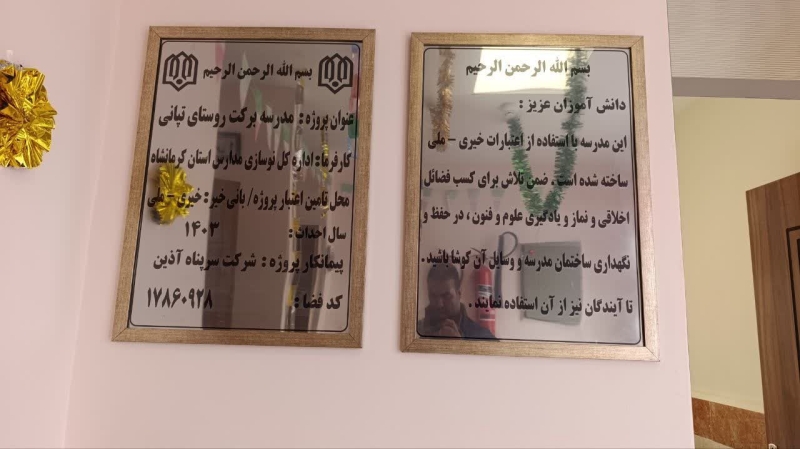 بسم الله الرحمن الرحیم
دانش آموزان عزیز :
این مدرسه با استفاده از اعتبارات خیری - ملی
ساخته شده است . ضمن تلاش برای کسب فضائل
اخلاقی و نماز و یادگیری علوم و فنون ، در حفظ و
نگهداری ساختمان مدرسه و وسایل آن کوشا باشید .
تا آیندگان نیز از آن استفاده نمایند .
بسم الله الرحمن الرحیم
عنوان پروژه : مدرسه برکت روستای تپانی
کارفرما : اداره کل نوسازی مدارس استان کرمانشاه
محل تامین اعتبار پروژه / بانی خیر : خیری - ملی
سال احداث : ۱۴۰۳
پیمانکار پروژه : شرکت سرپناه آذین
کد فضا : ۱۷۸۶۰۹۲۸